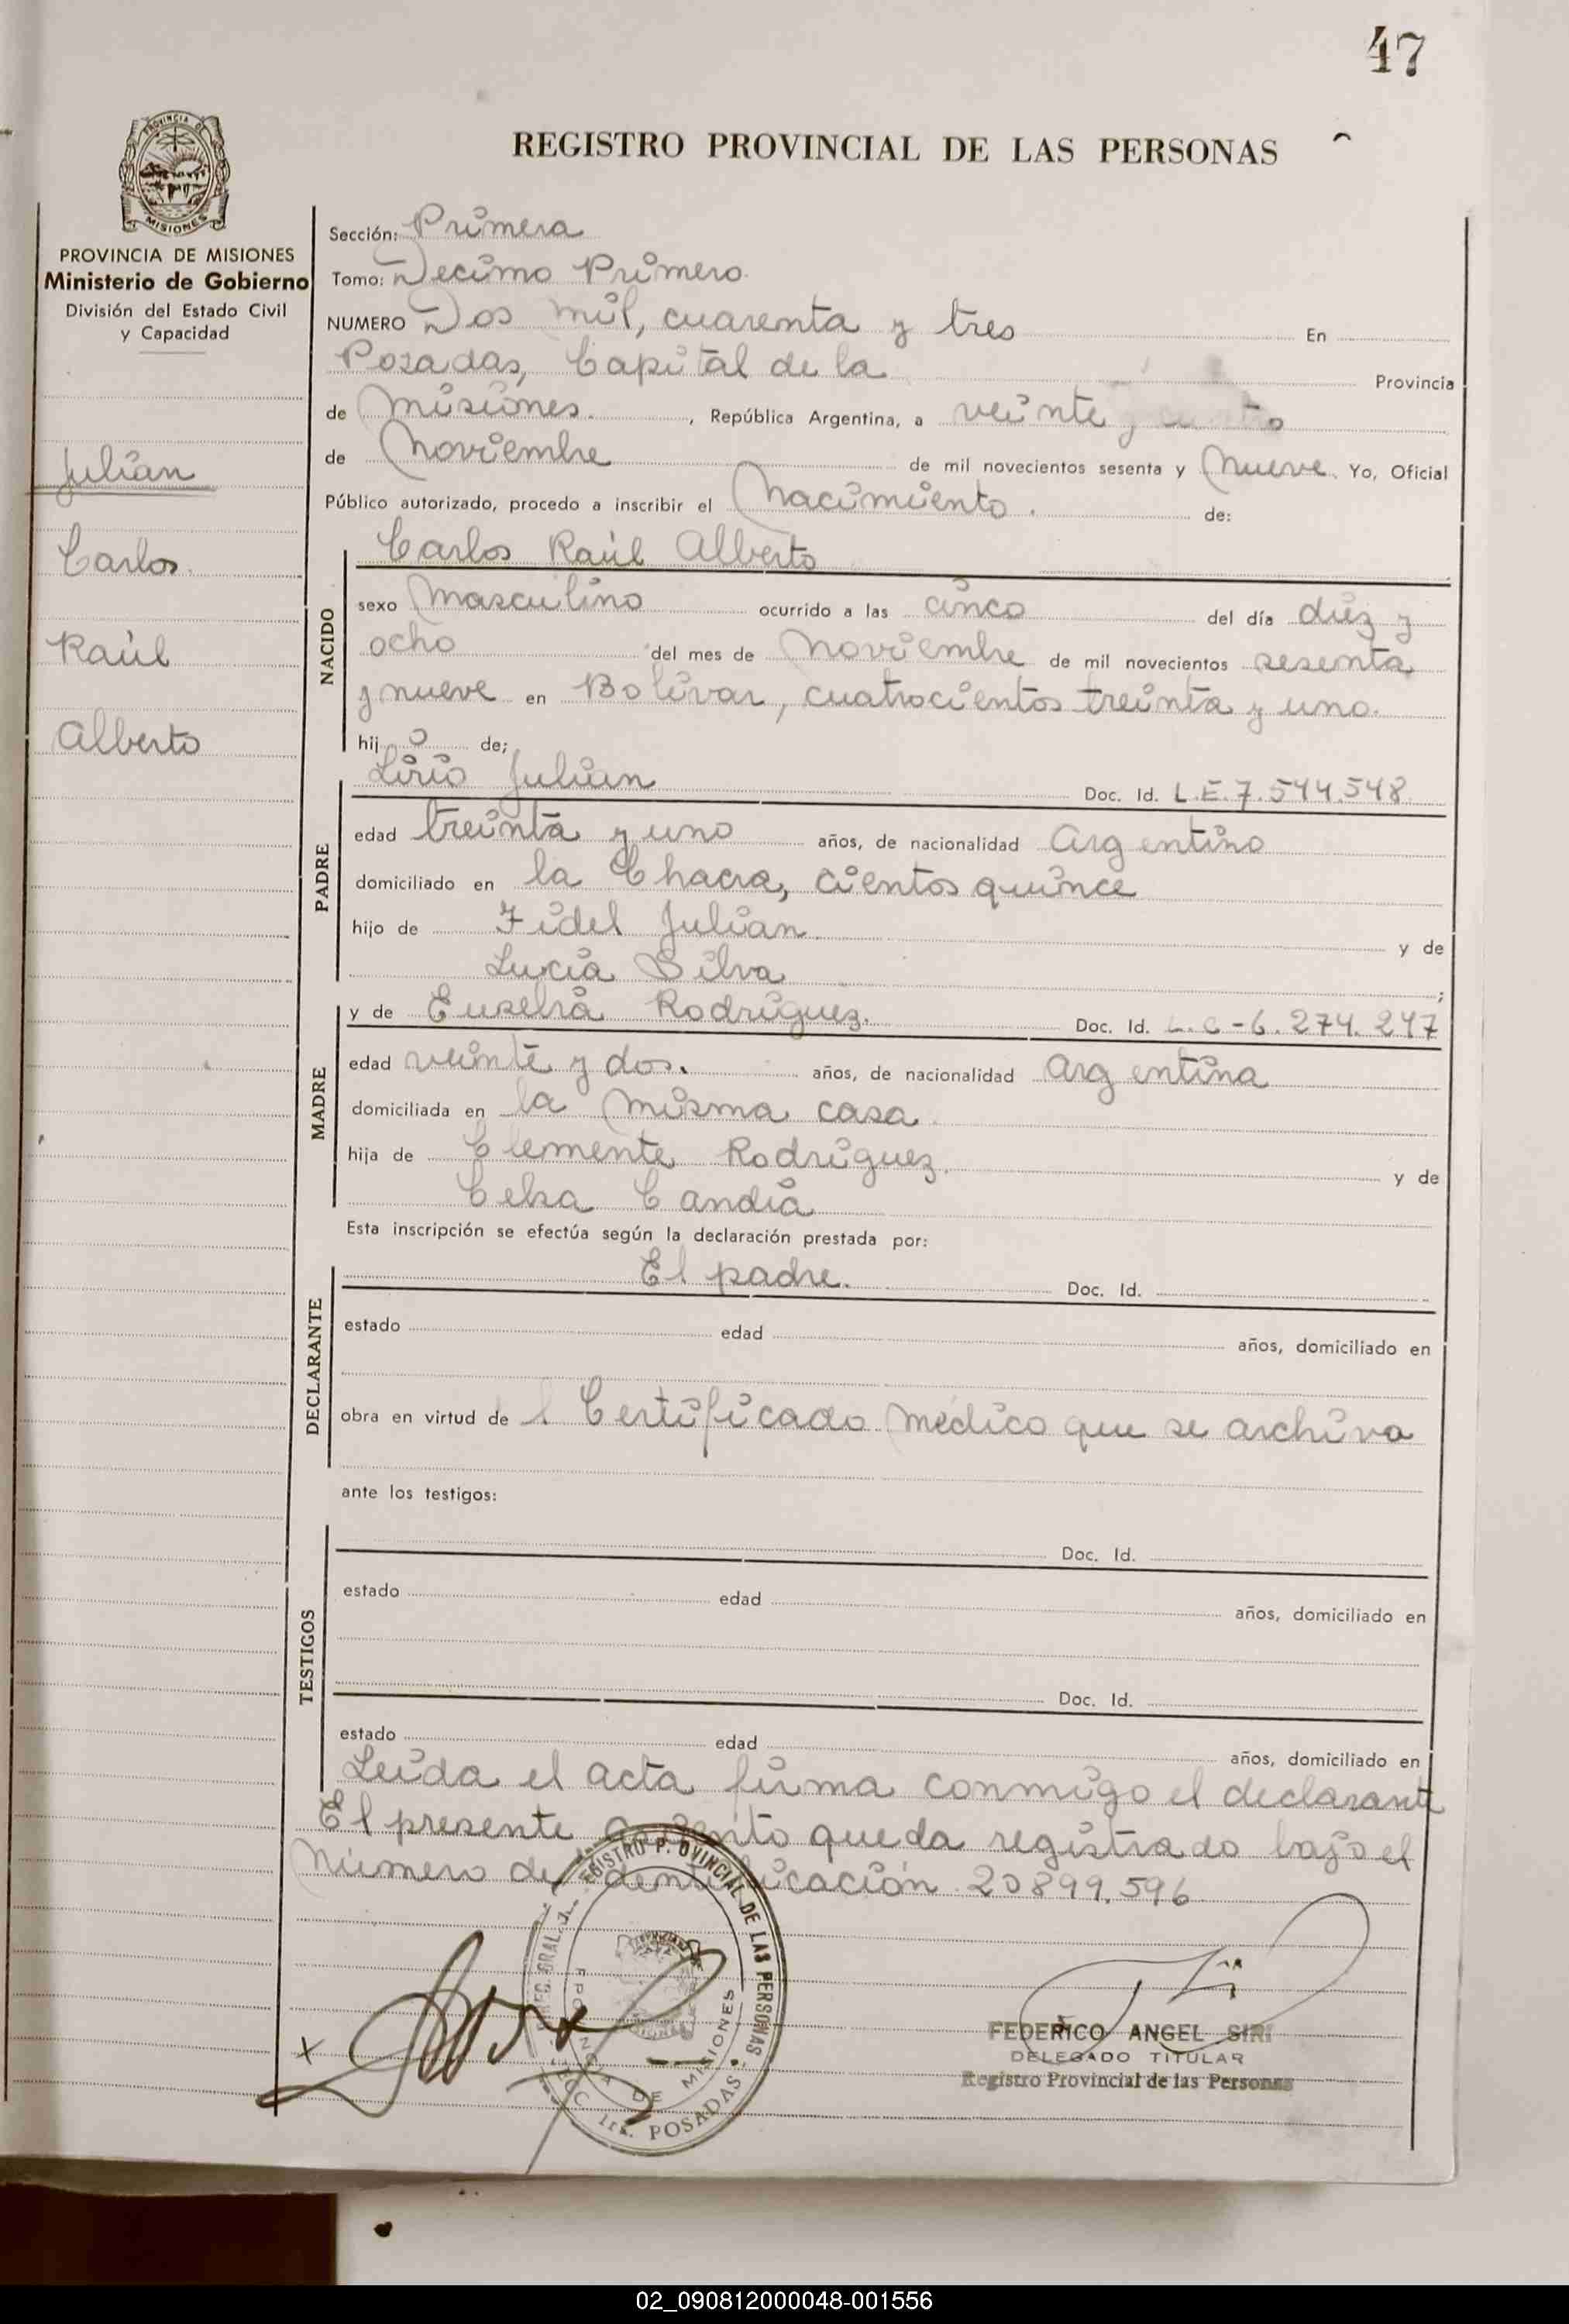 47
REGISTRO PROVINCIAL DE LAS PERSONAS
PROVINCIA DE MISIONES
Ministerio de Gobierno
División del Estado Civil
y Capacidad
Julián
Carlos
Raúl
Alberto
Sección: Primera
Tomo: Decimo Primero
NUMERO Dos mil, cuarenta y tres En
Posadas, Capital de la Provincia
de Misiones, República Argentina, a veinte y cuatro
de Noviembre de mil novecientos sesenta y Nueve Yo, Oficial
Público autorizado, procedo a inscribir el Nacimiento de:
NACIDO
Carlos Raúl Alberto
sexo Masculino ocurrido a las cinco del día diez y
ocho del mes de Noviembre de mil novecientos sesenta
y nueve en Bolívar, cuatrocientos treinta y uno.
hijo de;
PADRE
Lirio Julian Doc. Id. L.E. 7.544.548
edad treinta y uno años, de nacionalidad Argentino
domiciliado en la Chacra, cientos quince
hijo de Fidel Julian y de
Lucia Silva ;
MADRE
y de Eusebia Rodríguez. Doc. Id. L.C-6.274.247
edad veinte y dos. años, de nacionalidad Argentina
domiciliada en la misma casa
hija de Clemente Rodríguez. y de
Celsa Candia
Esta inscripción se efectúa según la declaración prestada por:
DECLARANTE
El padre. Doc. Id.
estado edad años, domiciliado en
obra en virtud del Certificado médico que se archiva
ante los testigos:
TESTIGOS
Doc. Id.
estado edad años, domiciliado en
Doc. Id.
estado edad años, domiciliado en
Leida el acta firma conmigo el declarante
El presente asiento queda registrado bajo el
Número de identificación 20899.596
REGISTRO PROVINCIAL DE LAS PERSONAS
PROVINCIA DE MISIONES
POSADAS
FEDERICO ANGEL SIRI
DELEGADO TITULAR
Registro Provincial de las Personas
02_090812000048-001556